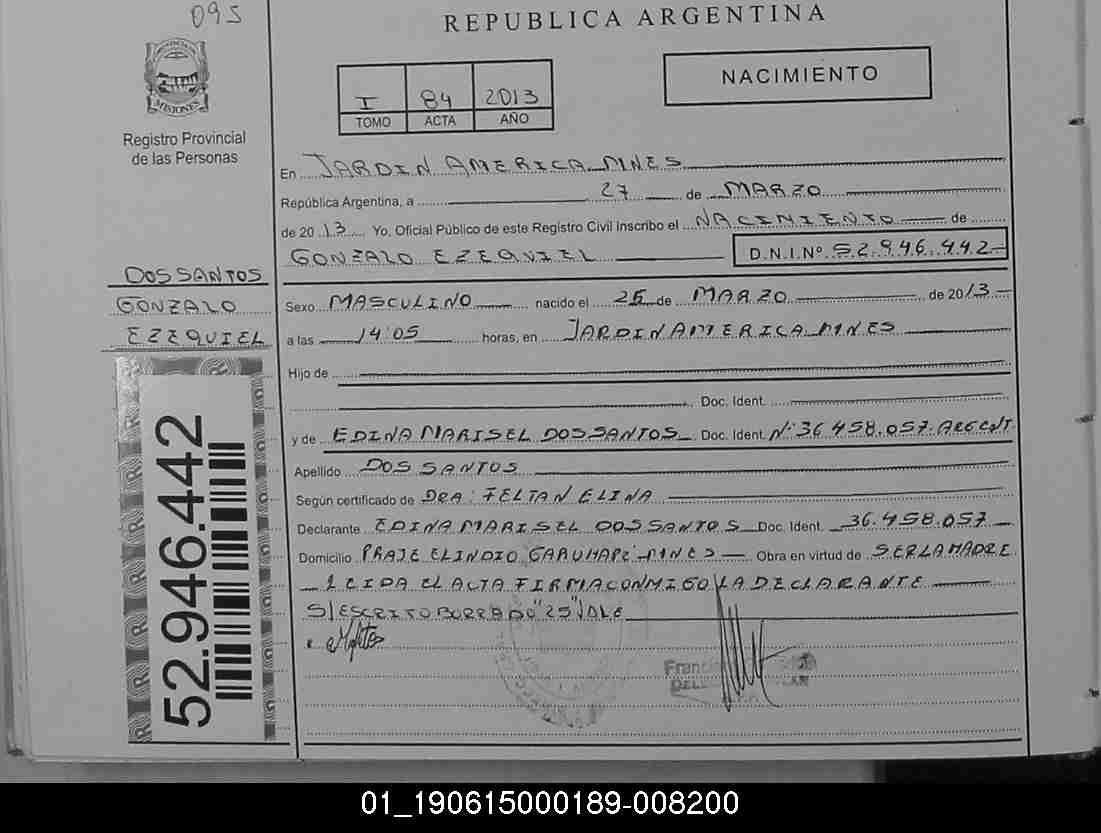 095
REPUBLICA ARGENTINA
PROVINCIA
MISIONES
Registro Provincial
de las Personas
I 84 2013
TOMO ACTA AÑO
NACIMIENTO
En JARDIN AMERICA MNES
República Argentina, a 27 de MARZO
de 2013 Yo, Oficial Público de este Registro Civil Inscribo el NACIMIENTO de
GONZALO EZEQUIEL D.N.I.Nº 52.946.442
DOS SANTOS
GONZALO
EZEQUIEL
Sexo MASCULINO nacido el 25 de MARZO de 2013
a las 14:05 horas, en JARDIN AMERICA MNES
Hijo de
Doc. Ident.
y de EDINA MARISEL DOS SANTOS Doc. Ident. Nº 36.458.057. ARGENT
Apellido DOS SANTOS
Según certificado de DRA: FELTAN ELINA
Declarante EDINA MARISEL DOS SANTOS Doc. Ident. 36.458.057
Domicilio PRAJE EL INDIO GARUHAPE MNES Obra en virtud de SER LA MADRE
LEIDA EL ACTA FIRMA CONMIGO LA DECLARANTE
S/ESCRITO BORRADO "25" VALE
52.946.442
01_190615000189-008200